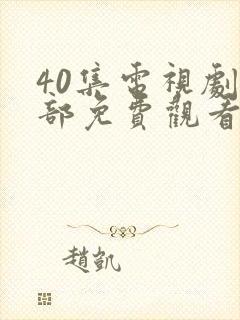 40集電視劇
部免費觀看
趙凱